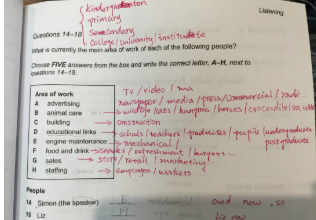 Listening
kindergarten
primary
secondary
College/university/institute
Questions 14–18
What is currently the main area of work of each of the following people?
Choose FIVE answers from the box and write the correct letter, A–H, next to
questions 14–18.
Area of work
TV / video /
A advertising
newspaper / media / press / commercial / radio
B animal care → wildlife / cats / kangaroo / horses / crocodile
C building construction
D educational links → schools / teachers / graduates / pupils / undergraduate
postgraduate
E engine maintenance → mechanical /
F food and drink → snacks / refreshment / burgers
G sales → store / retail / marketing
H staffing → employees / workers
People
14 Simon (the speaker) E mechanical and now . so
15 Liz H liz now